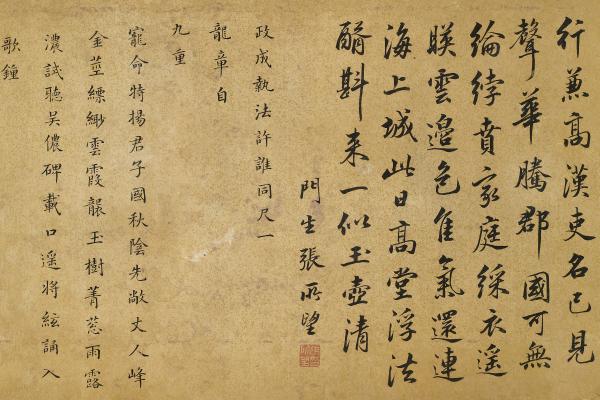 行兼高漢吏名已見
聲華騰郡國可無
綸綍賁家庭綵衣遥
暎雲邉色隹氣還連
海上城此日高堂浮法
醑斟来一似玉壺清
門生張所望
政成執法許誰同尺一
龍章自
九重
寵命特揚君子國秋陰先敞丈人峰
金莖縹緲雲霞襲玉樹菁葱雨露
濃試聽吴儂碑載口遥將絃誦入
歌鐘